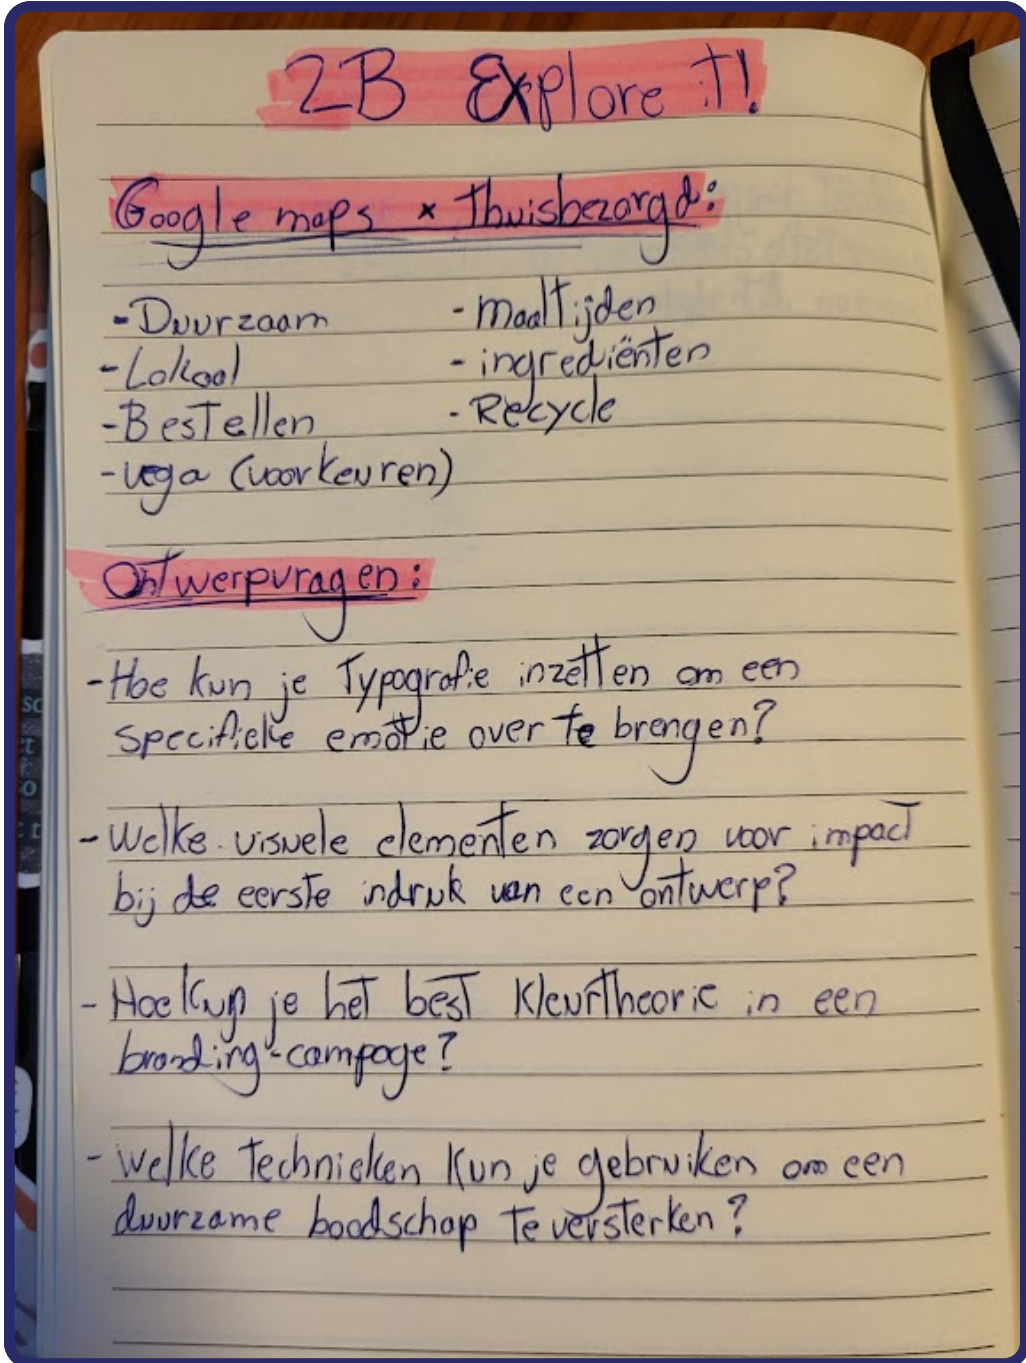 2B Explore it!
Google maps x Thuisbezorgd:
- Duurzaam
- Lokaal
- Bestellen
- vega (voorkeuren)
- maaltijden
- ingrediënten
- Recycle
Ontwerpvragen:
- Hoe kun je Typografie inzetten om een
specifieke emotie over te brengen?
- Welke visuele elementen zorgen voor impact
bij de eerste indruk van een ontwerp?
- Hoe kun je het best Kleurtheorie in een
branding-campage?
- Welke technieken kun je gebruiken om een
duurzame boodschap te versterken?